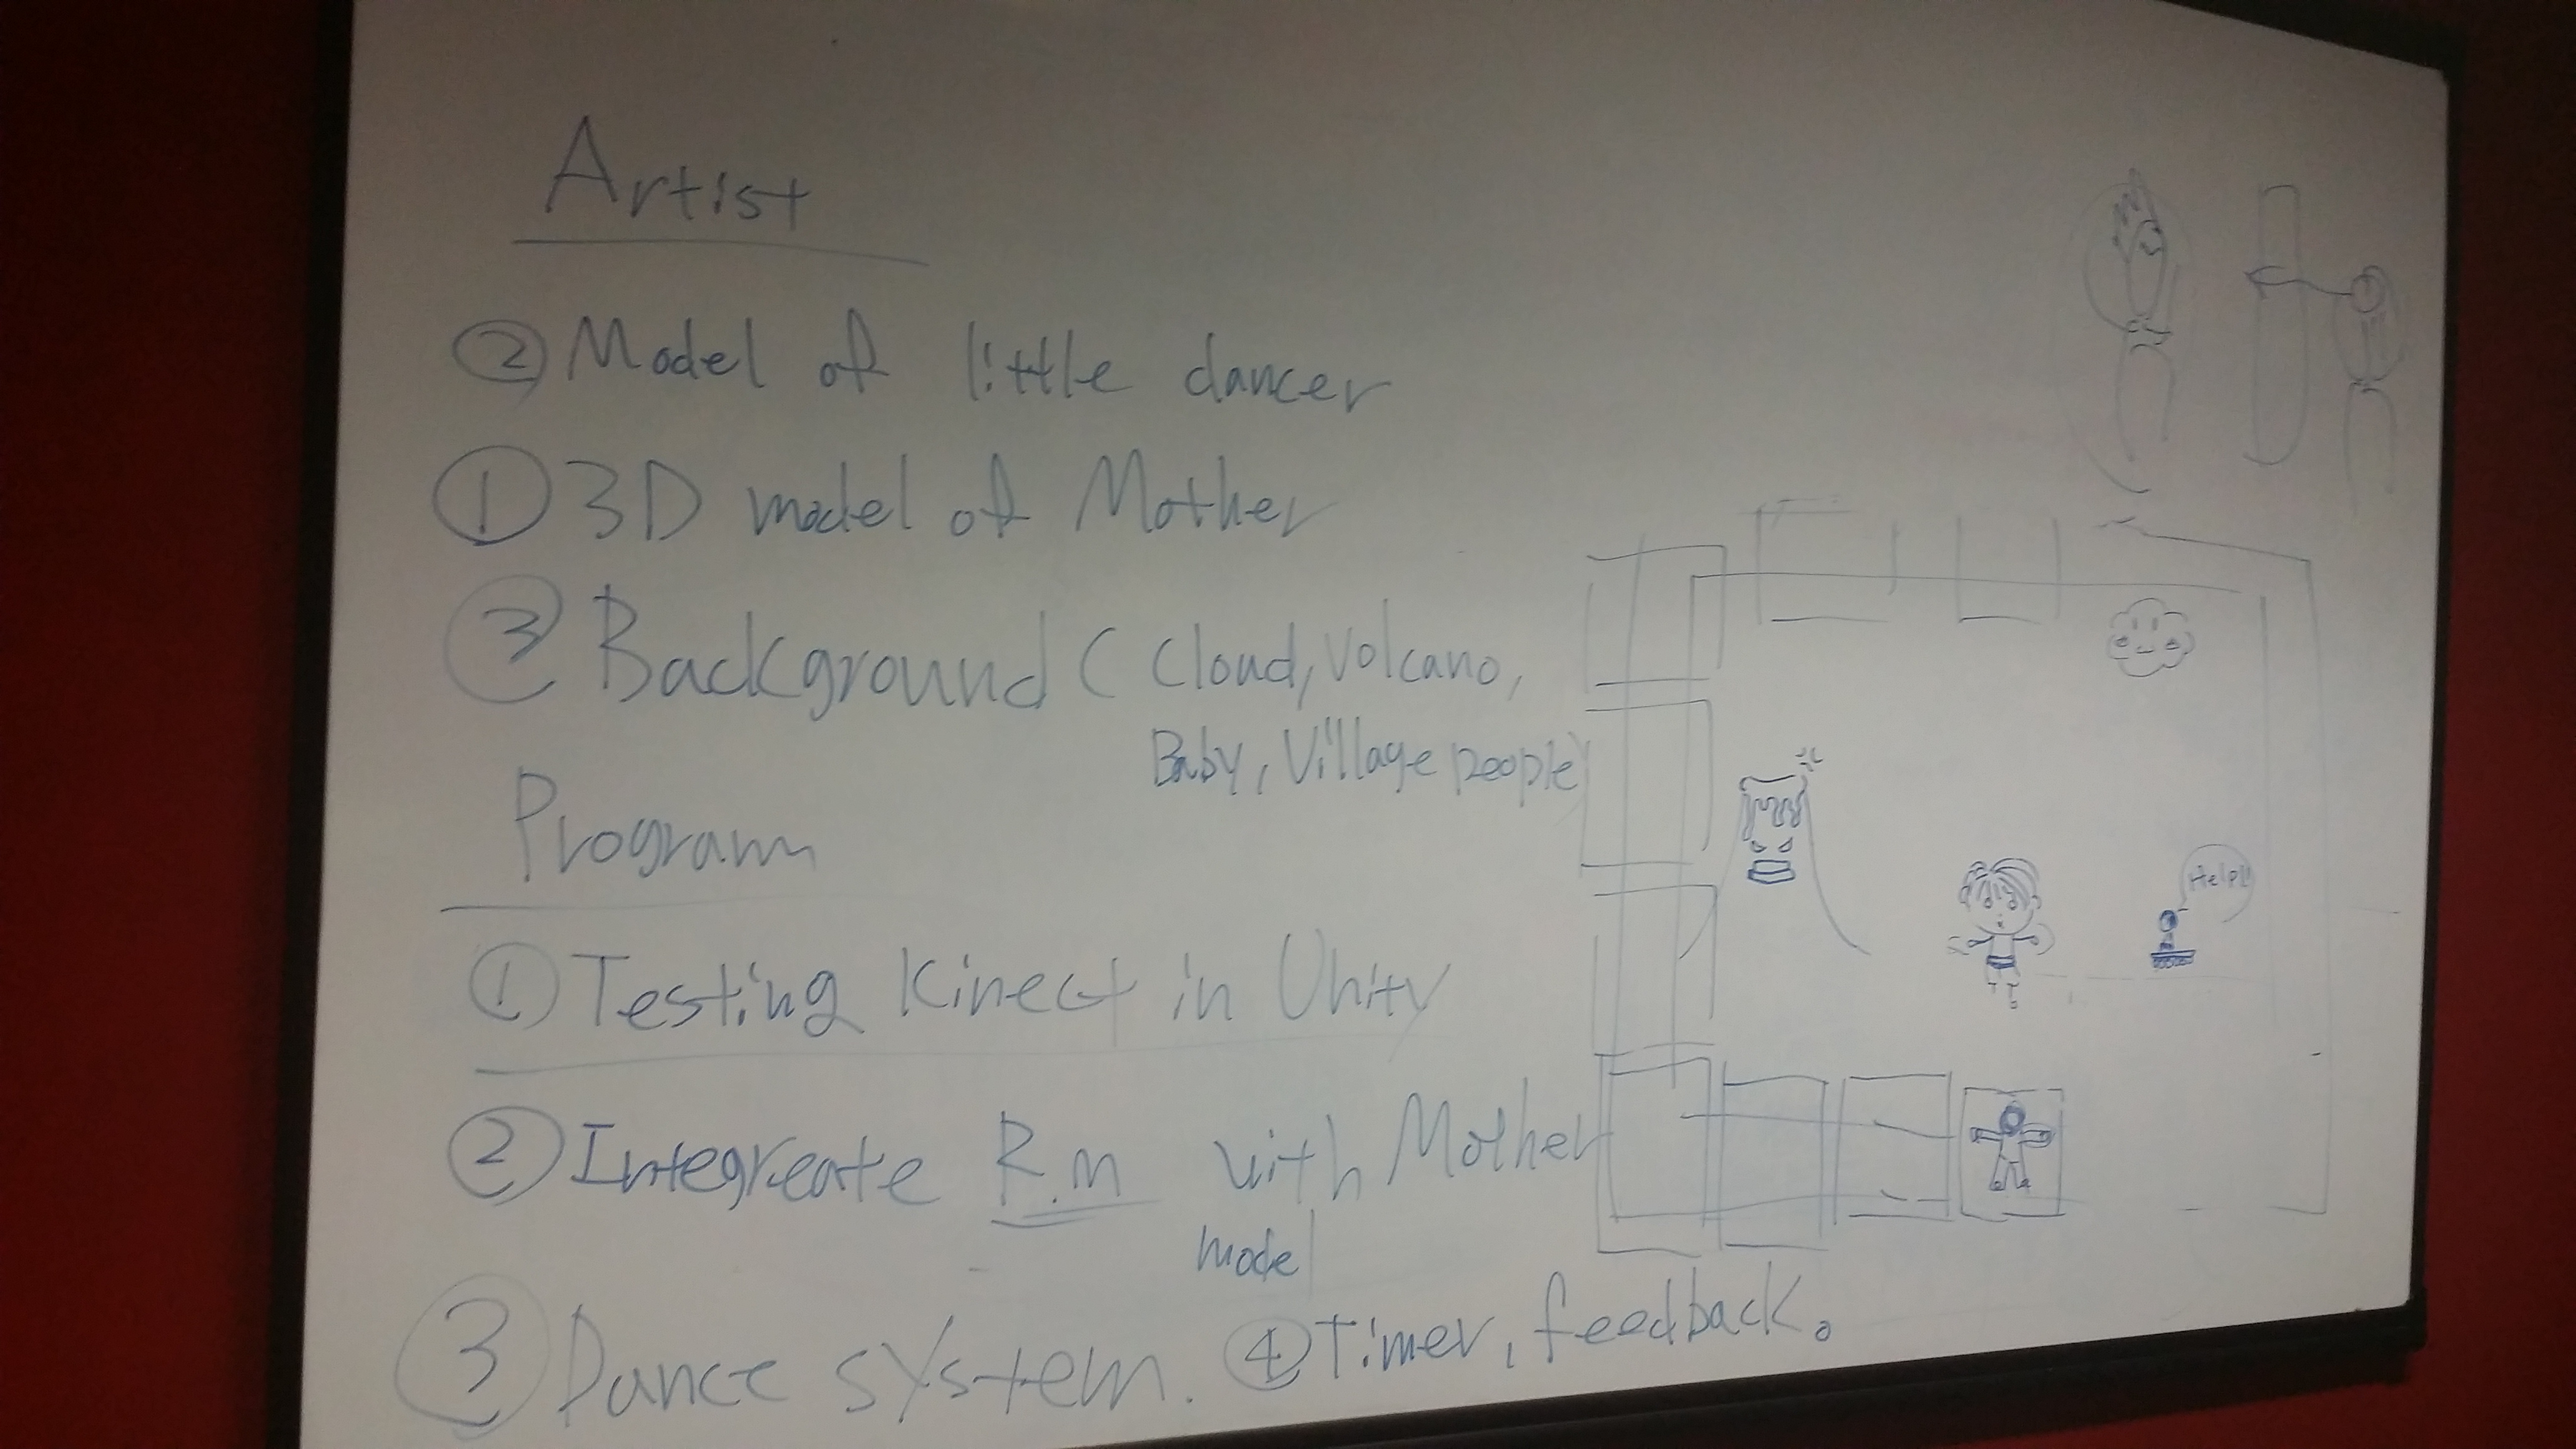 Artist
② Model of little dancer
① 3D model of Mother
③ Background ( Cloud, Volcano,
Baby, Village people)
Program
① Testing Kinect in Unity
② Integreate R.M with Mother
model
③ Dance system. ④ Timer, feedback.
Help!!